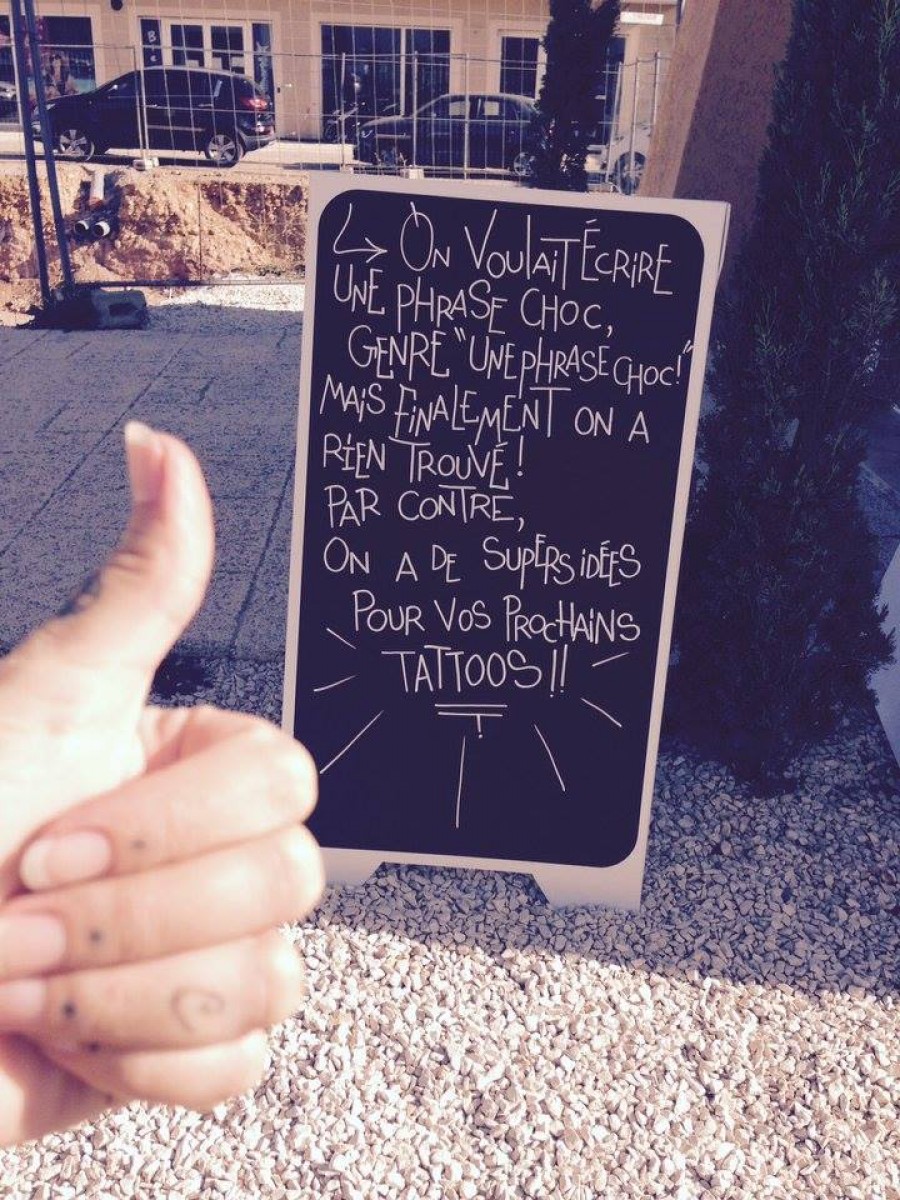 ↳ ON VOULAIT ÉCRIRE
UNE PHRASE CHOC,
GENRE "UNE PHRASE CHOC!"
MAIS FINALEMENT ON A
RIEN TROUVÉ!
PAR CONTRE,
ON A DE SUPERS IDÉES
POUR VOS PROCHAINS
TATTOOS!!